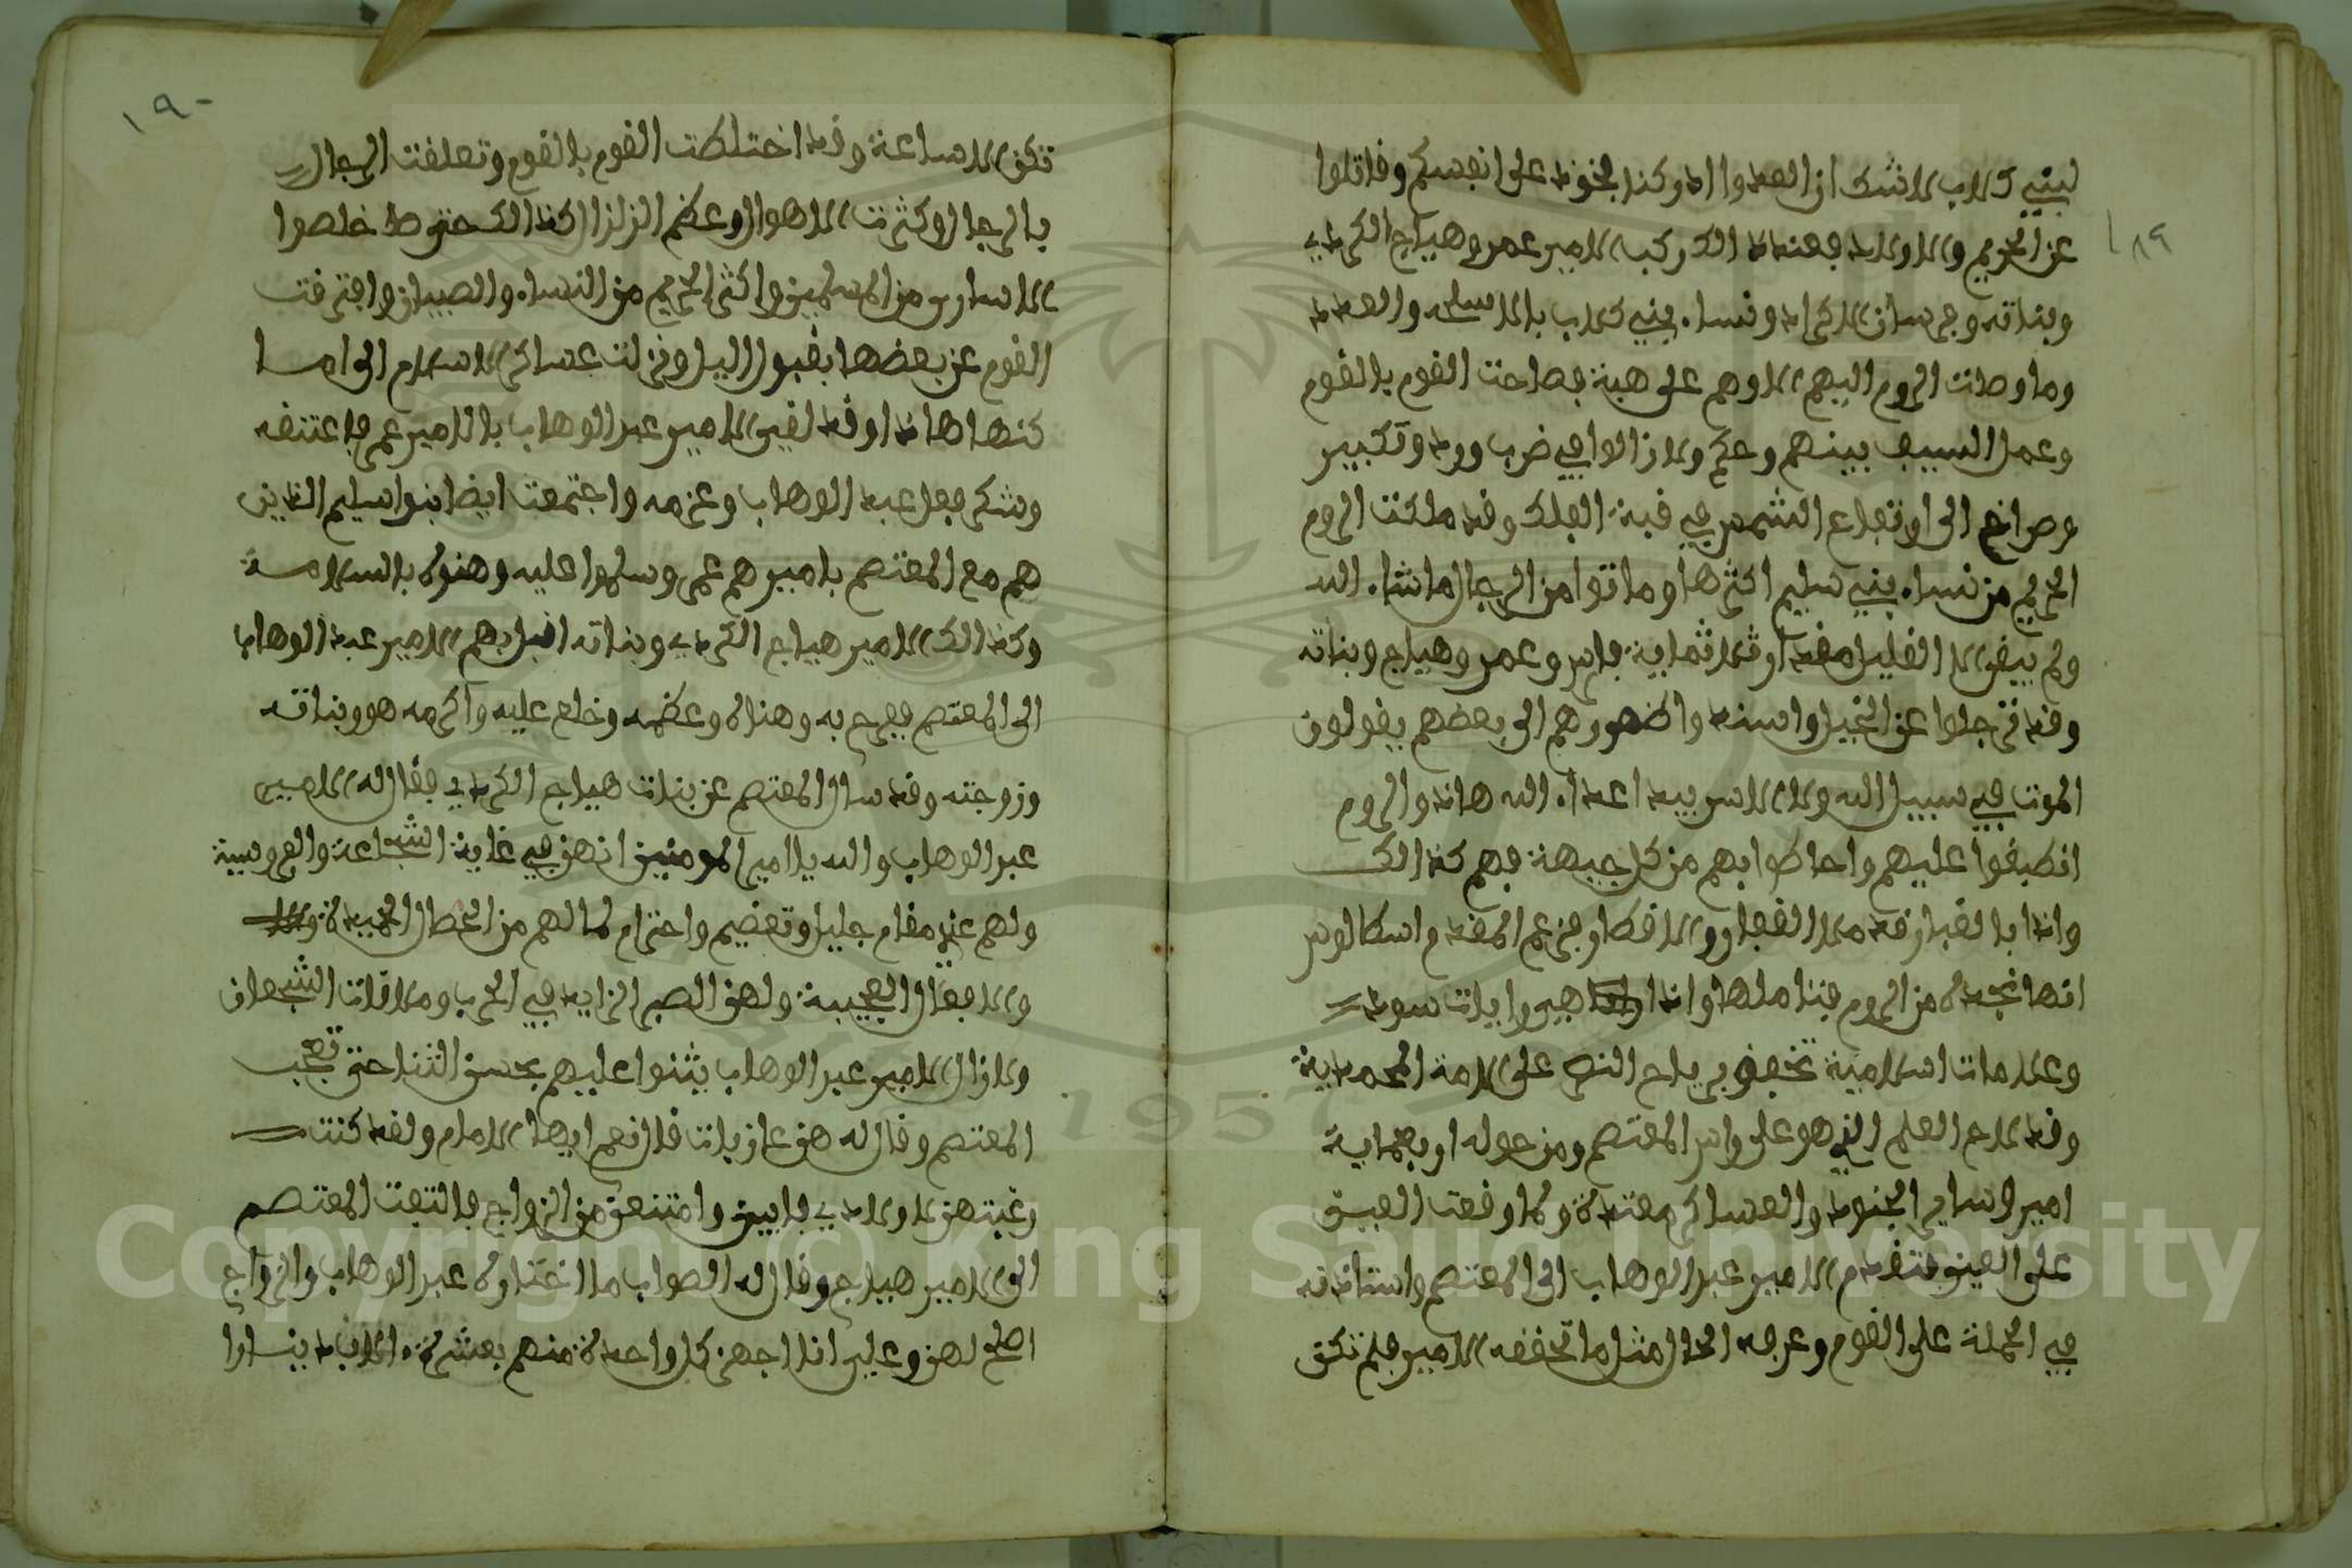 ١٨٩
لبني كلاب لاشك ان العدوا ادركنا فخذ على انفسكم وقاتلوا
عن الحريم والاولاد فعند ذلك ركب الامير عمر وهياج الكردي
وبناته وفرسان الاكراد ونساء بني كلاب بالاسلحه والعدد
وما وصلت الروم اليهم الا وهم على هبة فصاحت القوم بالقوم
وعمل السيف بينهم وحكم ولا زالوا في ضرب ورد وتكبير
وصراخ الى ارتفاع الشمس في قبة الفلك وقد ملكت الروم
الحريم من نساء بني سليم اكثرها وماتوا من الرجال ماشاء الله
ولم يبقى الا القليل مقدار ثلاثماية فارس وعمر وهياج وبناته
وقد ترجلوا عن الخيل واسندوا ظهورهم الى بعضهم يقولون
الموت في سبيل الله ولا الاسر بيد اعداء الله هاذ والروم
انطبقوا عليهم واحاطوا بهم من كل جيهة فهم كذالك
واذا بالغبار قد ملا القفار والاقطار فزعم المقدم اسطالوس
انها نجدة من الروم فتاملها واذا هي رايات سود
وعلامات اسلامية تخفق برياح النصر على الامة المحمدية
وقد لاح العلم الذي هو على راس المعتصم ومن حوله اربعماية
امير وساير الجنود والعساكر معتدة ولما وقعت العين
على العين فتقدم الامير عبد الوهاب الى المعتصم واستاذنه
في الحملة على القوم وعرفه الحال مثل ما تحققه الامير فلم تكن
١٩٠
تكن الا ساعة وقد اختلطت القوم بالقوم وتعلقت الرجال
بالرجال وكثرت الاهوال وعظم الزلزال كذالك حتى خلصوا
الاسارى من المسلمين واكثر الحريم من النساء والصبيان وافترقت
القوم عن بعضها بقبول الليل ونزلت عساكر الاسلام الى اما
كنها هاذا وقد لقي الامير عبد الوهاب بالامير عمر فاعتنقه
وشكر فعل عبد الوهاب وعزمه واجتمعت ايضا بنوا سليم الذين
هم مع المعتصم باميرهم عمر وسلموا عليه وهنوه بالسلامة
وكذالك الامير هياج الكردي وبناته اقبل بهم الامير عبد الوهاب
الى المعتصم ففرح به وهناه وعظمه وخلع عليه واكرمه هو وبناته
وزوجته وقد سال المعتصم عن بنات هياج الكردي فقال له الامير
عبد الوهاب والله يا امير المومنين انهن في غاية الشجاعة والفروسية
ولهم عندي مقام جليل وتعضيم واحترام لما لهم من الخصال الحميدة
والافعال العجيبة ولهن الصبر الزايد في الحرب وملاقات الشجعان
ولا زال الامير عبد الوهاب يثنوا عليهم بحسن الثنا حتى تعجب
المعتصم وقال له هن عازبات قال نعم ايها الامام ولقد كنت
رغبتهن لاولادي فابين وامتنعن من الزواج فالتفت المعتصم
الى الامير هياج وقال له الصواب ما اختاره عبد الوهاب والزواج
اصلح لهن وعلي انا اجهز كل واحدة منهم بعشرة الاف دينارا